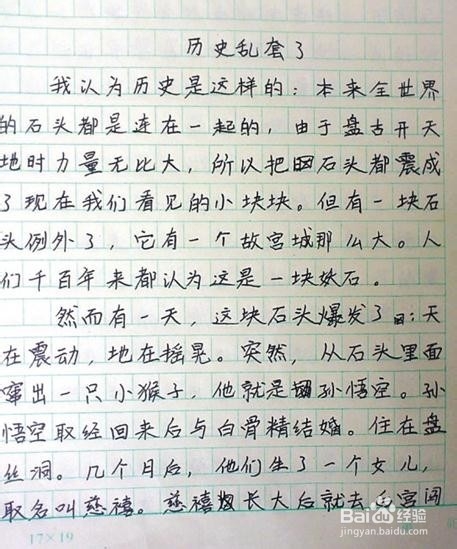 历史乱套了
我认为历史是这样的：本来全世界
的石头都是连在一起的，由于盘古开天
地时力量无比大，所以把石头都震成
了现在我们看见的小块块。但有一块石
头例外了，它有一个故宫城那么大。人
们千百年来都认为这是一块妖石。
然而有一天，这块石头爆发了：天
在震动，地在摇晃。突然，从石头里面
窜出一只小猴子，他就是孙悟空。孙
悟空取经回来后与白骨精结婚。住在盘
丝洞。几个月后，他们生了一个女儿，
取名叫慈禧。慈禧长大后就去白宫闯
17×19
Baidu 经验
jingyan.baidu.com